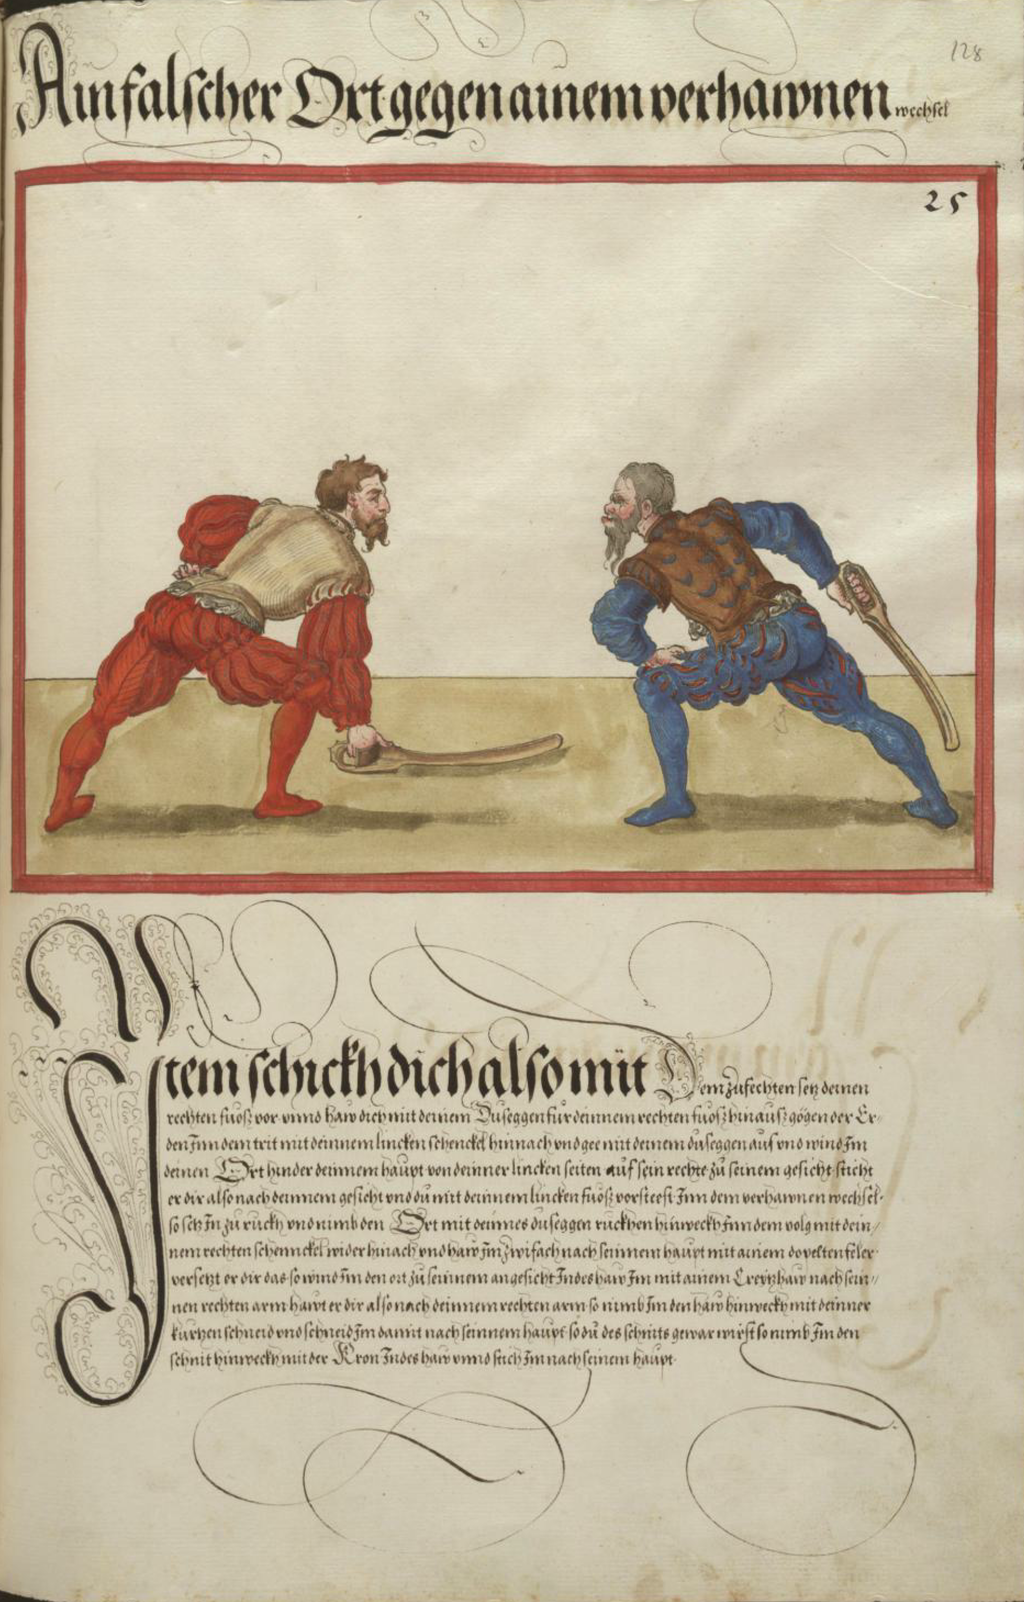 128
Ain falscher Ort gegen ainem verhawnen wechsel
25
Item schickh dich also mit Dem zufechten setz deinen
rechten fuosz vor vnnd haw dich mit deinem Duseggen fur deinnem rechten fuosz hinausz gögen der Er-
den Inn dem trit mit deinnem lincken schenckel hinnach vnd gee mit deinem duseggen auf vnd wind Im
deinen Ort hinder deinnem haupt von deinner lincken seiten auf sein rechte zu seinem gesicht sticht
er dir also nach deinnem gesicht vnd du mit deinnem lincken fuosz vorsteest Inn dem verhawnen wechsel
so setz In zu ruckh vnd nimb den Ort mit deinnes duseggen ruckhen hinweckh Inn dem volg mit dein/
nem rechten schennckel wider hinach vnd haw Im zwifach nach seinnem haupt mit ainem doveltenn feler
versetzt er dir das so wind Im den ort zu seinnem angesicht Indes haw Im mit ainem Creytzhaw nach sein//
nen rechten arm hawt er dir also nach deinnem rechten arm so nimb Im den haw hinweckh mit deinner
kurtzen schneid vnd schneid Im damit nach seinnem haupt so du des schnits gewar wirst so nimb Im den
schnit hinweckh mit der Kron Indes haw vnnd stich Im nach seinem haupt